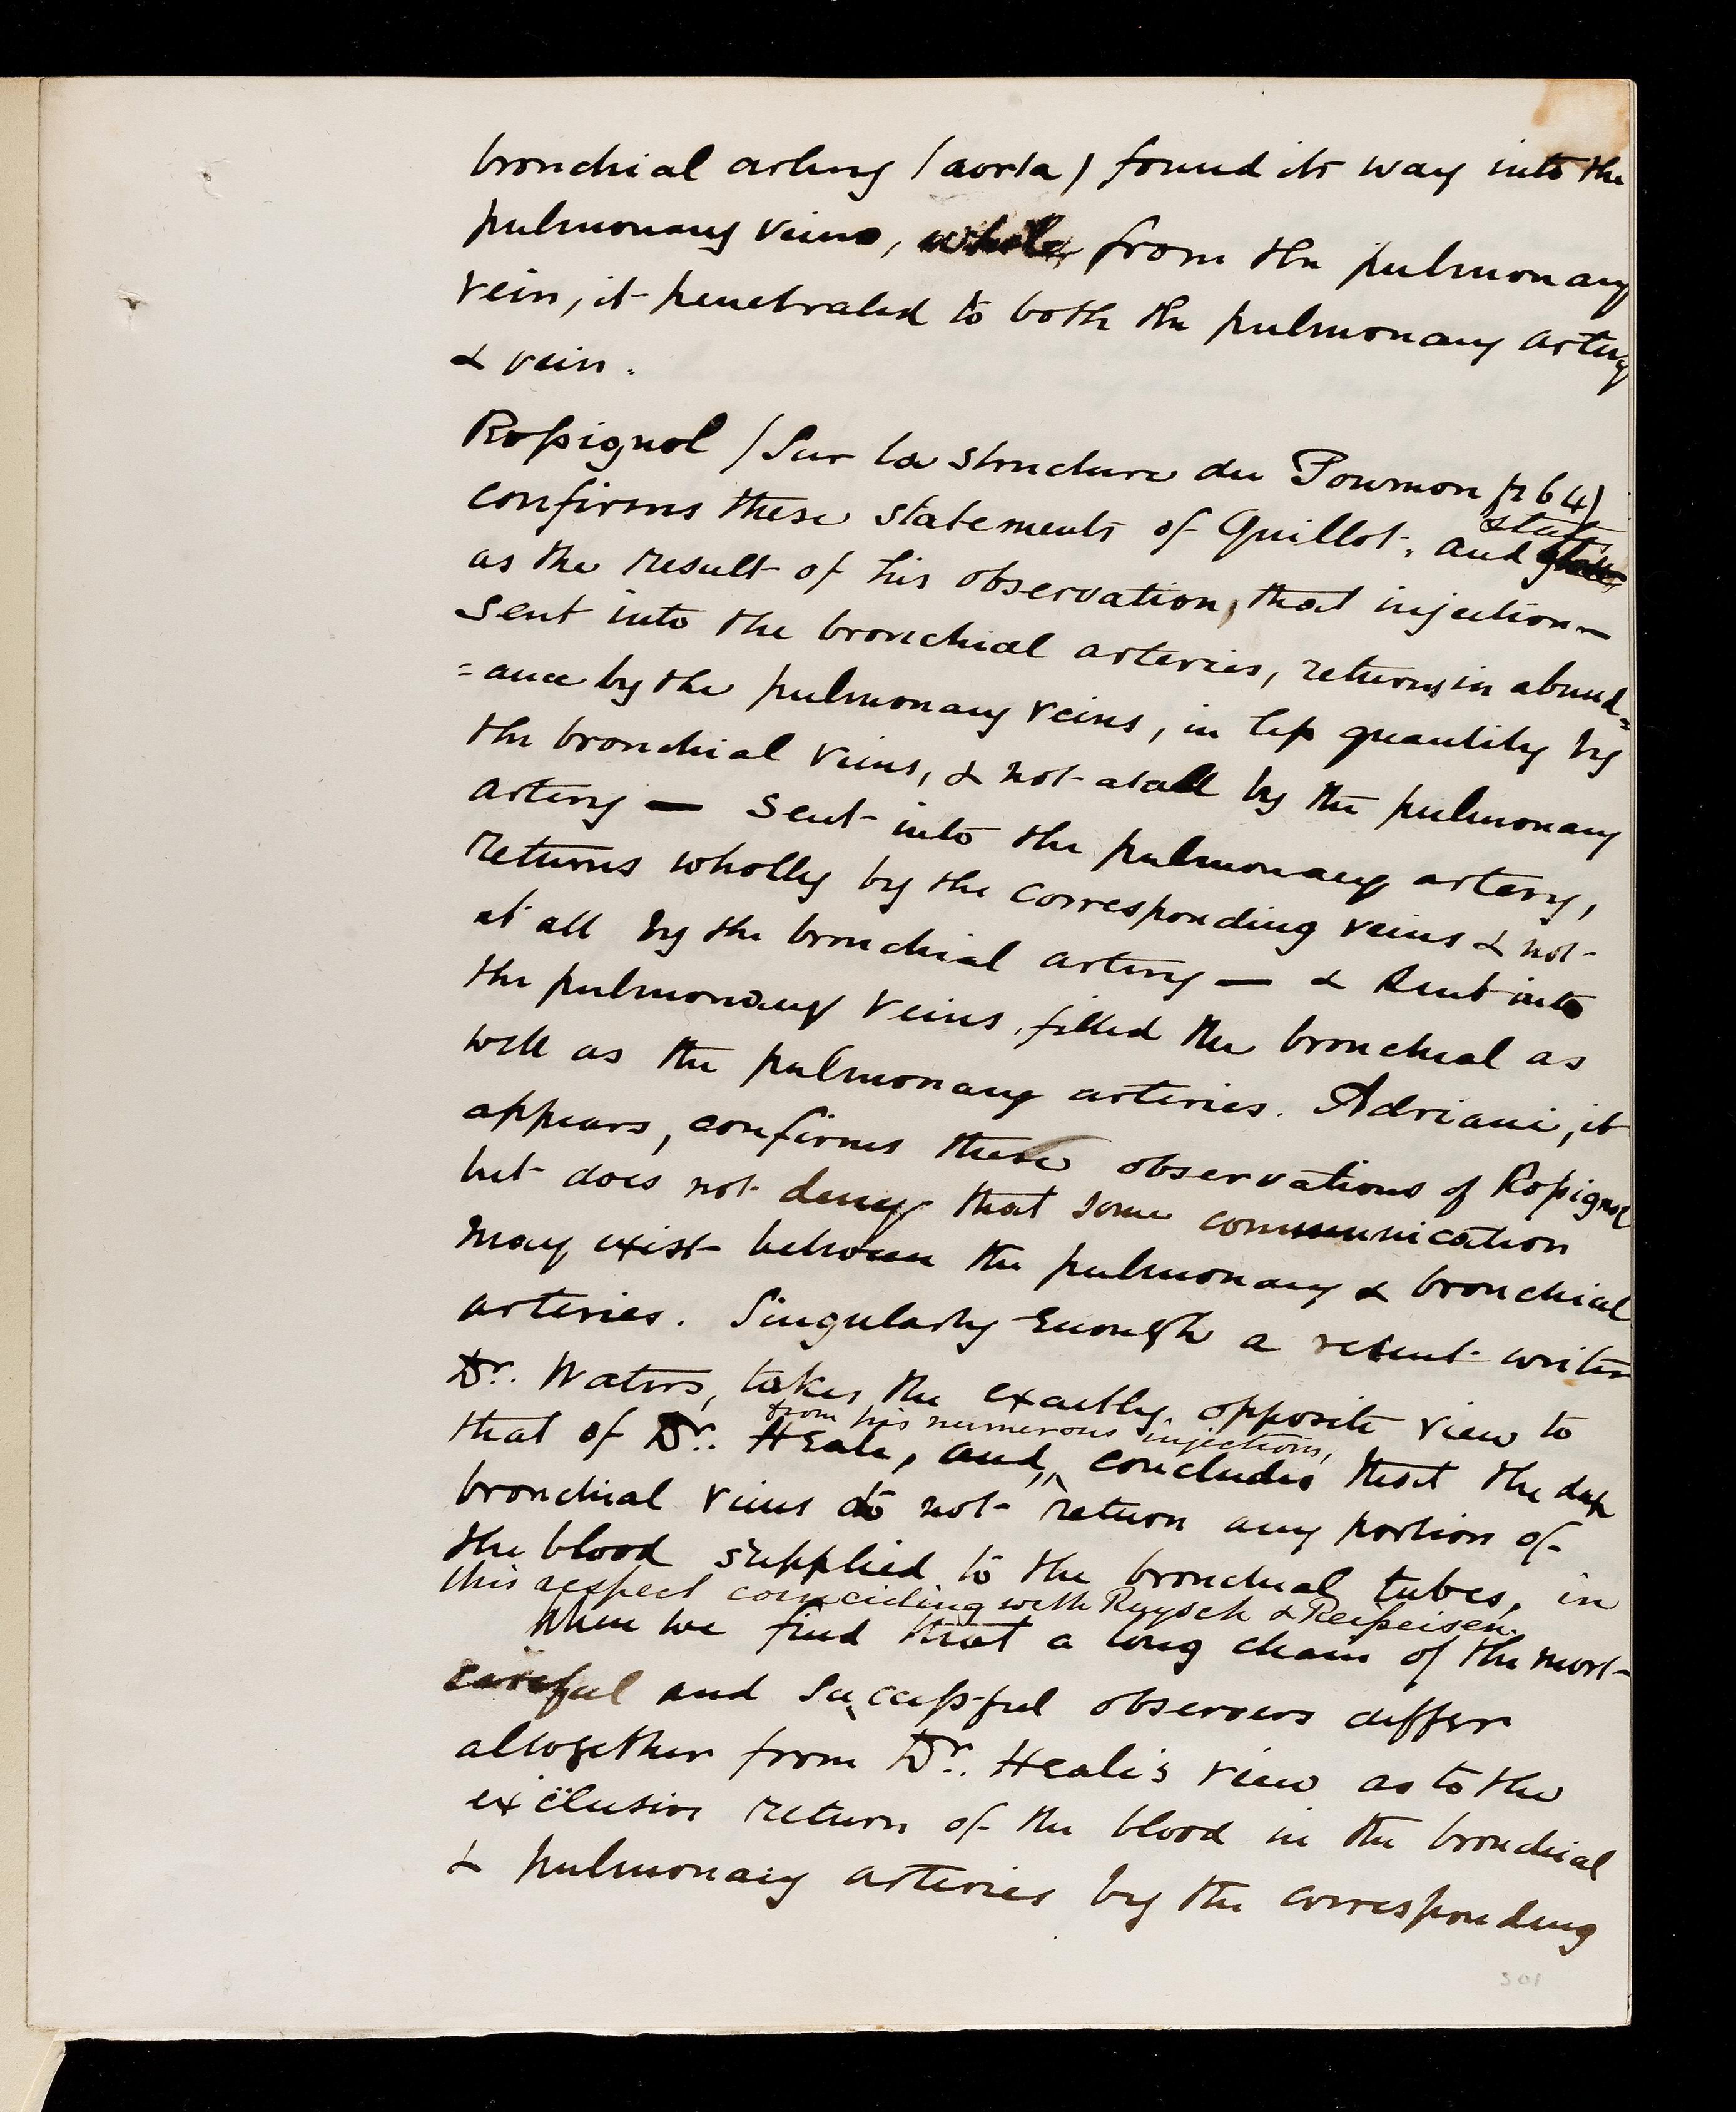 bronchial artery (aorta) found its way into the
pulmonary veins, while from the pulmonary
vein, it penetrated to both the pulmonary artery
& vein.
Rossignol (Sur la structure du Poumon p 64)
confirms these statements of Guillot. and
state
as the result of his observation, that injection
sent into the bronchial arteries, returns in abund=
=ance by the pulmonary veins, in less quantity by
the bronchial veins, & not at all by the pulmonary
artery — sent into the pulmonary artery,
returns wholly by the corresponding veins & not
at all by the bronchial artery — & sent into
the pulmonary veins, filled the bronchial as
well as the pulmonary arteries. Adriani, it
appears, confirms these observations of Rossignol
but does not deny that some communication
may exist between the pulmonary & bronchial
arteries. Singularly enough a recent writer
Dr. Waters, takes the exactly opposite view to
from his numerous injections,
that of Dr. Heale, and, concludes that the deep
bronchial veins do not return any portion of
the blood supplied to the bronchial tubes, in
this respect coinciding with Ruysch & Reisseisen.
When we find that a long chain of the most
careful and successful observers differ
altogether from Dr. Heale's view as to the
exclusive return of the blood in the bronchial
& pulmonary arteries by the corresponding
301